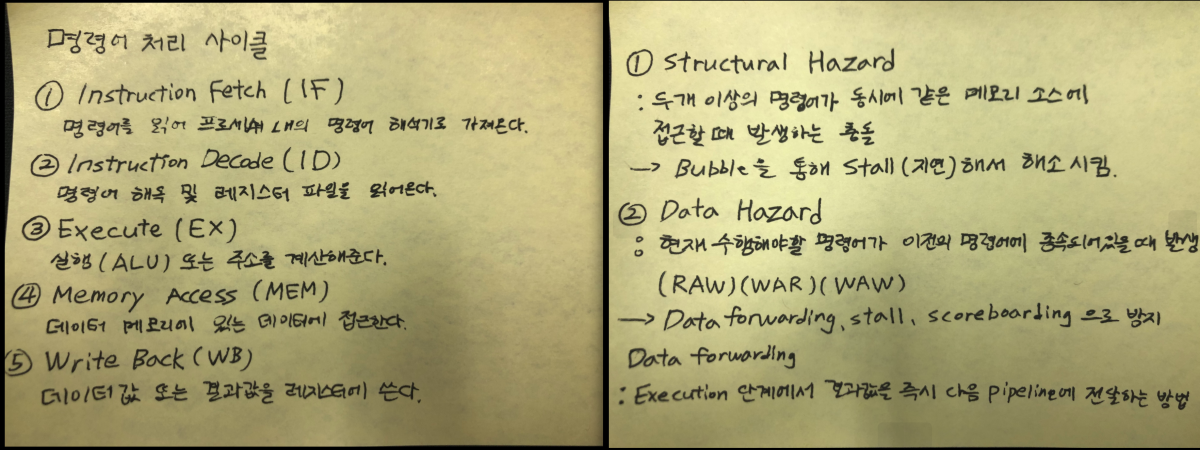 명령어 처리 사이클
① Instruction Fetch (IF)
명령어를 읽어 프로세서 내의 명령어 해석기로 가져온다.
② Instruction Decode (ID)
명령어 해독 및 레지스터 파일을 읽어온다.
③ Execute (EX)
실행 (ALU) 또는 주소를 계산해준다.
④ Memory Access (MEM)
데이터 메모리에 있는 데이터에 접근한다.
⑤ Write Back (WB)
데이터값 또는 결과값을 레지스터에 쓴다.
① Structural Hazard
: 두개 이상의 명령어가 동시에 같은 메모리 소스에
접근할 때 발생하는 충돌
→ Bubble을 통해 Stall (지연)해서 해소 시킴.
② Data Hazard
: 현재 수행해야할 명령어가 이전의 명령어에 종속되어있을 때 발생
(RAW)(WAR)(WAW)
→ Data forwarding, stall, scoreboarding 으로 방지
Data forwarding
: Execution 단계에서 결과값을 즉시 다음 pipeline에 전달하는 방법